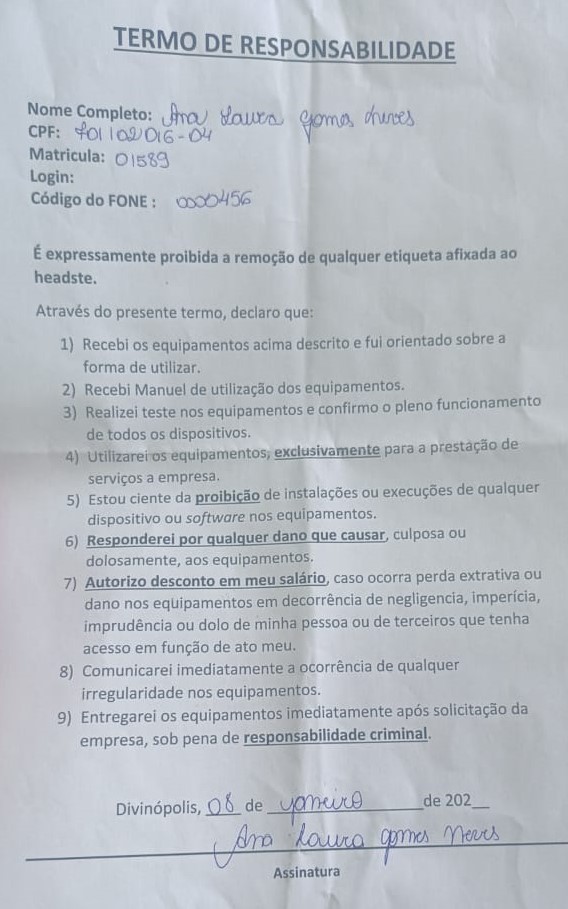 TERMO DE RESPONSABILIDADE
Nome Completo: Ana Laura gomes neves
CPF: 701102016-04
Matricula: 01589
Login:
Código do FONE : 0000456
É expressamente proibida a remoção de qualquer etiqueta afixada ao
headste.
Através do presente termo, declaro que:
1) Recebi os equipamentos acima descrito e fui orientado sobre a
forma de utilizar.
2) Recebi Manuel de utilização dos equipamentos.
3) Realizei teste nos equipamentos e confirmo o pleno funcionamento
de todos os dispositivos.
4) Utilizarei os equipamentos, exclusivamente para a prestação de
serviços a empresa.
5) Estou ciente da proibição de instalações ou execuções de qualquer
dispositivo ou software nos equipamentos.
6) Responderei por qualquer dano que causar, culposa ou
dolosamente, aos equipamentos.
7) Autorizo desconto em meu salário, caso ocorra perda extrativa ou
dano nos equipamentos em decorrência de negligencia, imperícia,
imprudência ou dolo de minha pessoa ou de terceiros que tenha
acesso em função de ato meu.
8) Comunicarei imediatamente a ocorrência de qualquer
irregularidade nos equipamentos.
9) Entregarei os equipamentos imediatamente após solicitação da
empresa, sob pena de responsabilidade criminal.
Divinópolis, 08 de janeiro de 202__
Ana Laura gomes Neves
Assinatura